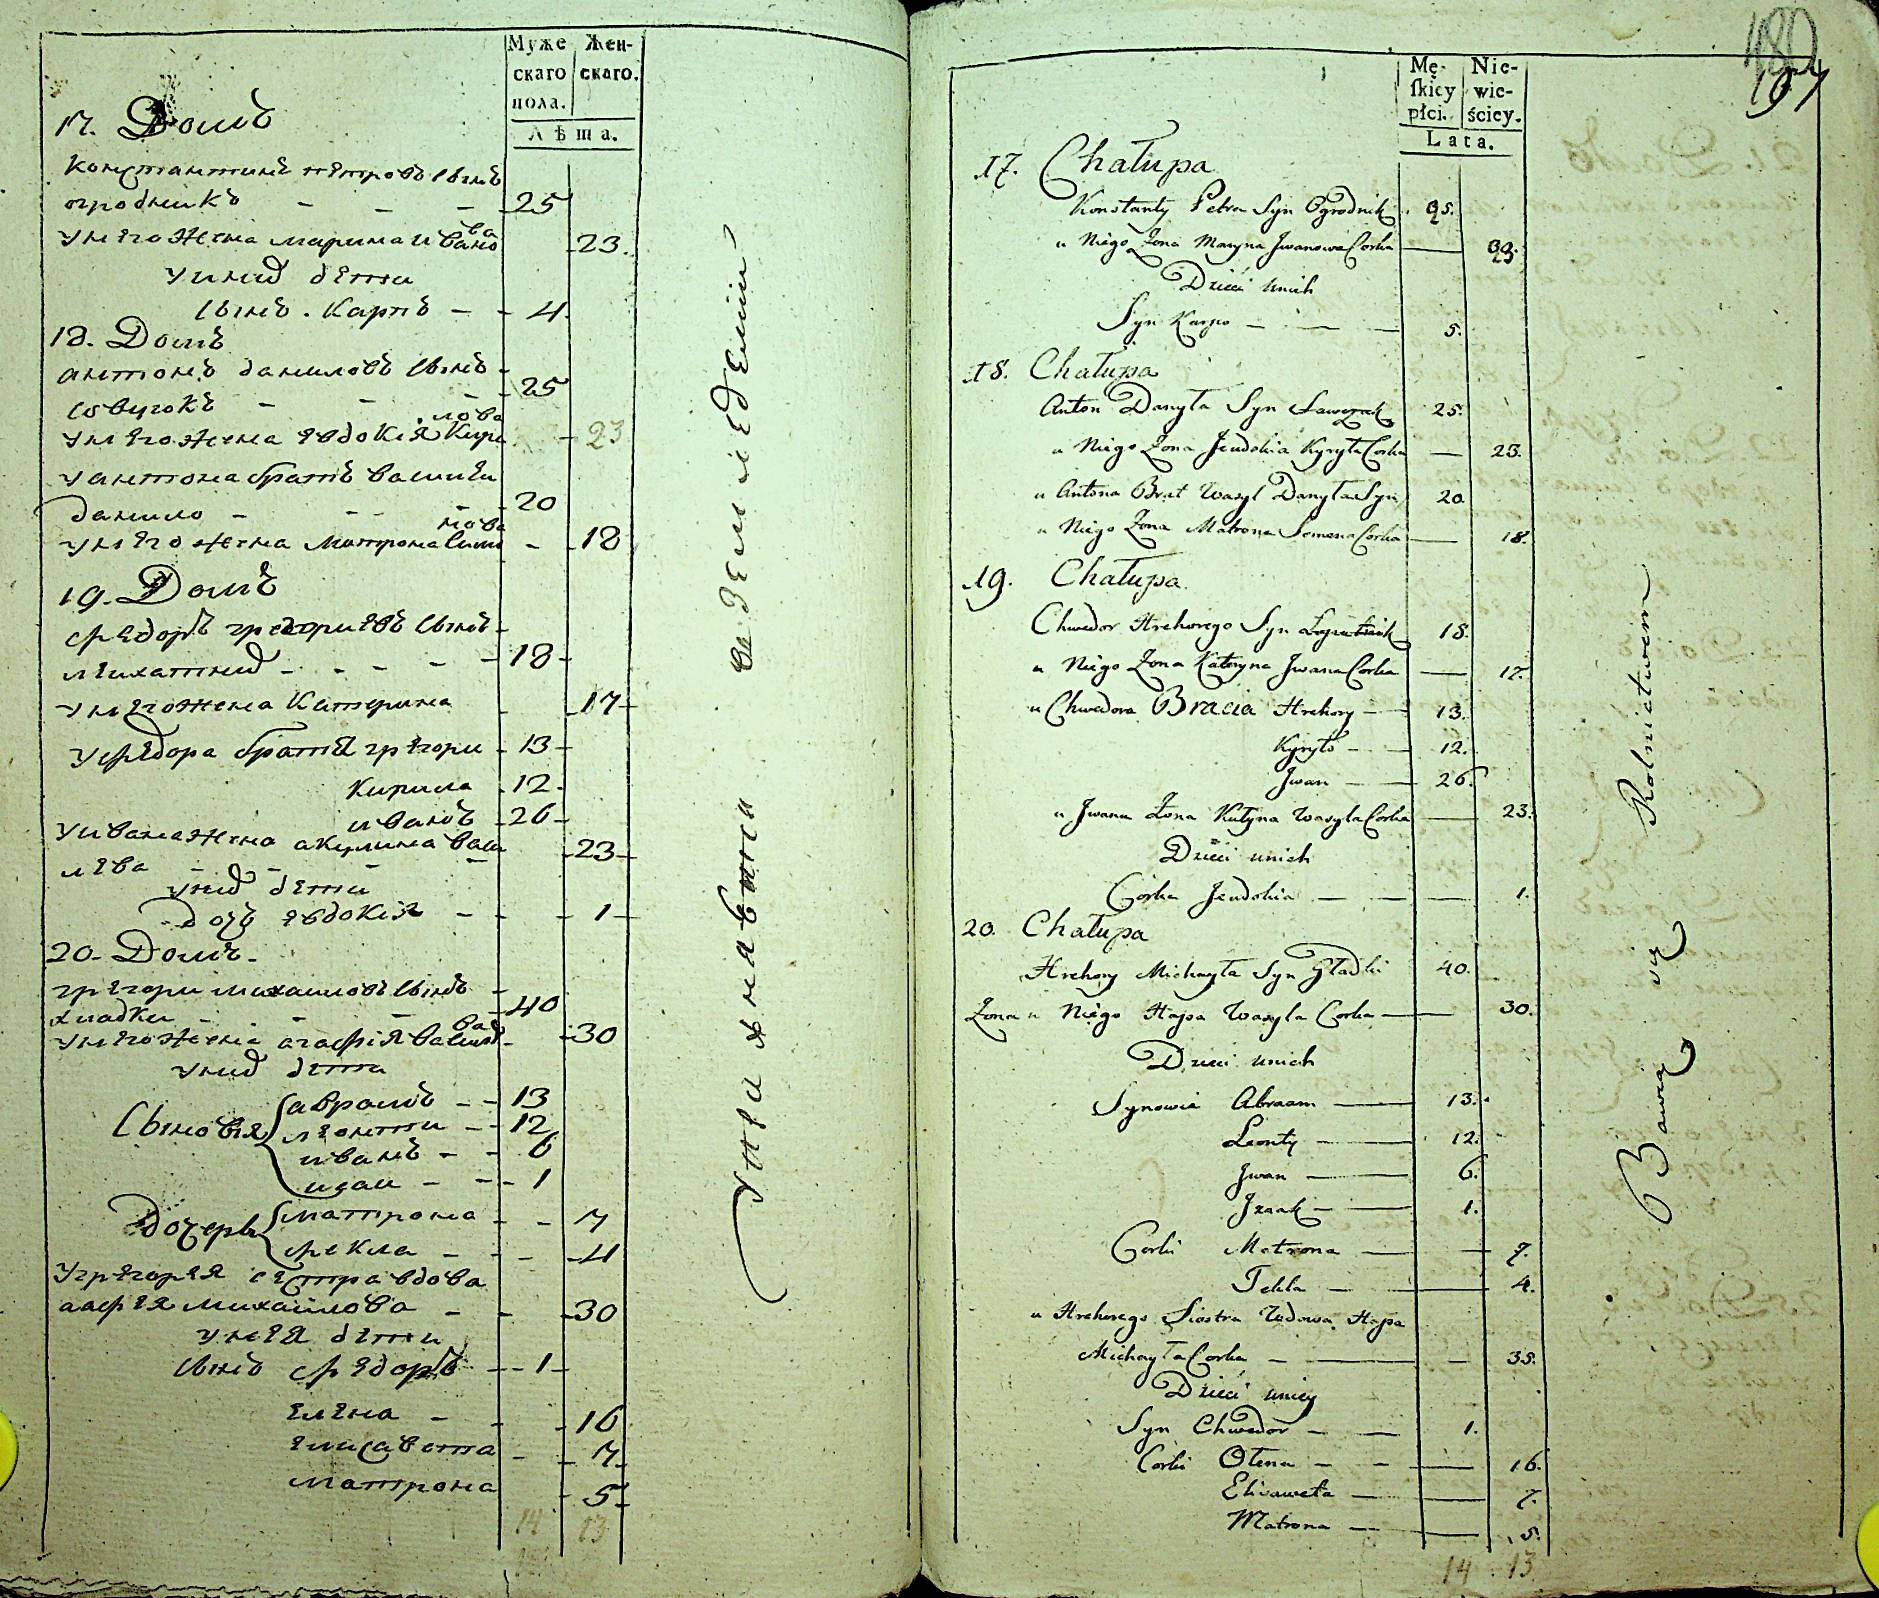 Муже
скаго
пола.
Жен-
скаго.
Лѣта.
17. Домъ
Константинъ петровъ сынъ
огродникъ - - - 25
у него жена марина ивано
ва 23.
у нихъ дети
сынъ. Карпъ - - 4.
18. Домъ
антонъ даниловъ сынъ -
савчукъ - - - 25
у него жена евдокия Кири
лова - 23
у антона братъ василеи
данило - - - - 20
у него жена матрона Сими
нова - 18
19. Домъ
федоръ грегориевъ сынъ -
лихатнид - - - - 18 -
у него жена Катерина - 17 -
у федора братья грегори - 13 -
Кирила - 12 -
иванъ - 26 -
у ивана жена акулина васи
лева - - - 23 -
у нихъ дети
дочь евдокия - - - 1 -
20. Домъ -
грегори михаиловъ сынъ -
хладки - - - 40
у него жена агафия васил
ва - 30
у нихъ дети
Сыновья
аврамъ - - 13
леонти - - 12
иванъ - - 6
исаи - - - 1
Дочерь
матрона - - 7
фекла - - - 4
у грегория сестра вдова
агафия михаилова - - - 30
у нея дети
сынъ федоръ - - 1 -
елена - - - 16
елисавета - - 7.
матрона - 5 -
14 13
упражнавыи в земледелии
180
197
Mę-
skiey
płci.
Nie-
wie-
ściey.
Lata.
17. Chałupa
Konstanty Petra Syn Ogrodnik. 25.
u Niego Żona Maryna Jwanowa Corka — 23.
Dzieci unich
Syn Karpo — — — 5.
18. Chałupa
Anton Danyła Syn Sawczuk 25.
u Niego Żona Jeudokia Kyryła Corka — 23.
u Antona Brat Wasyl Danyła Syn 20.
u Niego Żona Matrona Semena Corka — 18.
19. Chałupa
Chwedor Hrehorego Syn 18.
u Niego Żona Kateryna Jwana Corka — 17.
u Chwedora Bracia Hrehory — 13.
Kyryło — 12.
Jwan — 26.
u Jwana Żona Kulyna Wasyla Corka — 23.
Dzieci unich
Corka Jeudokia — — — 1.
20. Chałupa
Hrehory Michayła Syn Gładki 40.
Żona u Niego Hapa Wasyla Corka — 30.
Dzieci unich
Synowie Abraam — 13.
Leonty — 12.
Jwan — 6.
Jzaak — 1.
Corki Matrona — — 7.
Tekla — — 4.
u Hrehorego Siostra Wdowa Hapa
Michayła Corka — — — 35.
Dzieci uniey
Syn Chwedor — — 1.
Corki Ołena — — — 16.
Elisaweta — — 7.
Matrona — — 5.
14 13
Bawią się Rolnictwem